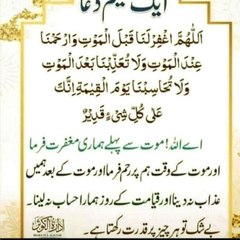 ایک عظیم دعا
اَللّٰهُمَّ اغْفِرْلَنَا قَبْلَ الْمَوْتِ وَارْحَمْنَا
عِنْدَ الْمَوْتِ وَلَا تُعَذِّبْنَا بَعْدَ الْمَوْتِ
وَلَا تُحَاسِبْنَا يَوْمَ الْقِيٰمَةِ اِنَّكَ
عَلٰى كُلِّ شَىْءٍ قَدِيْرٌ
اے اللہ! موت سے پہلے ہماری مغفرت فرما
اور موت کے وقت ہم پر رحم فرما اور موت کے بعد ہمیں
عذاب نہ دینا اور قیامت کے روز ہمارا حساب نہ لینا۔
بے شک تو ہر چیز پر قدرت رکھتا ہے۔